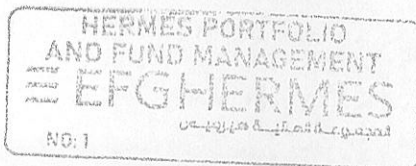 HERMES PORTFOLIO
AND FUND MANAGEMENT
EFGHERMES
المجموعة المالية هيرميس
NO: 1